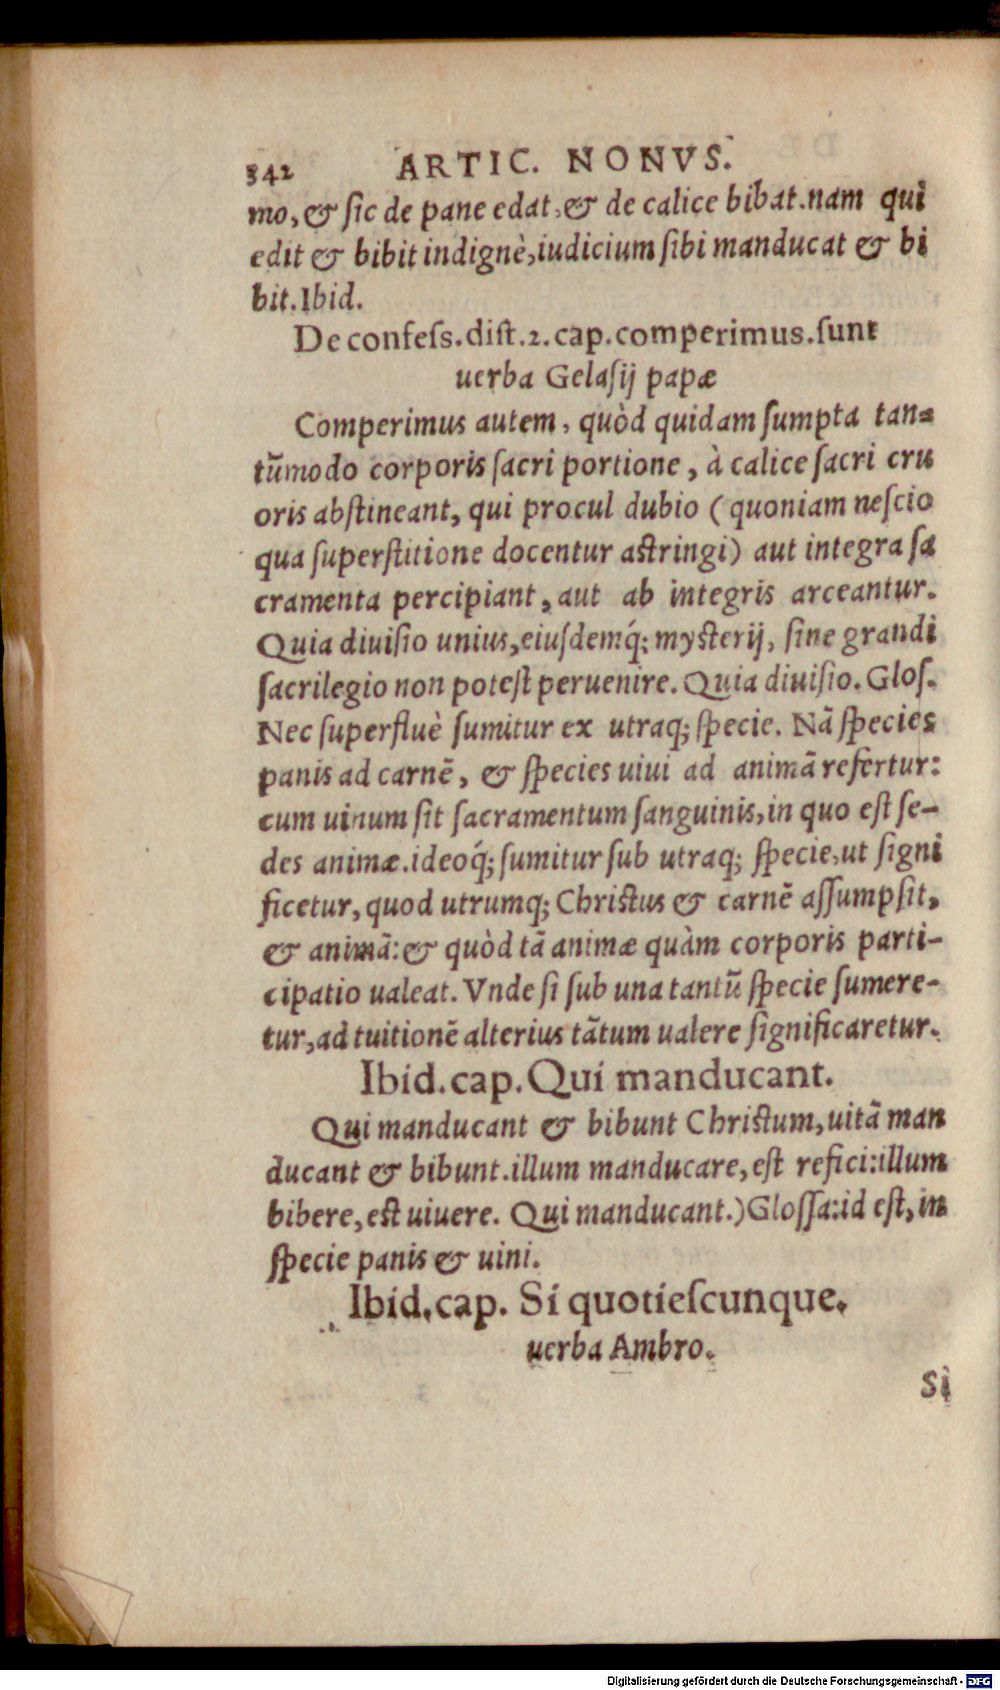 342 ARTIC. NONVS.
mo, & ſic de pane edat, & de calice bibat. nam qui
edit & bibit indignè, iudicium ſibi manducat & bi
bit. Ibid.
De confeſs. diſt. 2. cap. comperimus. ſunt
uerba Gelaſij papæ
Comperimus autem, quòd quidam ſumpta tan=
tũmodo corporis ſacri portione, à calice ſacri cru
oris abſtineant, qui procul dubio (quoniam neſcio
qua ſuperſtitione docentur aſtringi) aut integra ſa
cramenta percipiant, aut ab integris arceantur.
Quia diuiſio unius, eiuſdemq́; myſterij, ſine grandi
ſacrilegio non poteſt peruenire. Quia diuiſio. Gloſ.
Nec ſuperfluè ſumitur ex utraq; ſpecie. Nã ſpecies
panis ad carnẽ, & ſpecies uiui ad animã refertur:
cum uinum ſit ſacramentum ſanguinis, in quo eſt ſe-
des animæ. ideoq́; ſumitur ſub utraq; ſpecie, ut ſigni
ficetur, quod utrumq; Chriſtus & carnẽ aſſumpſit,
& animã: & quòd tã animæ quàm corporis parti-
cipatio ualeat. Vnde ſi ſub una tantũ ſpecie ſumere-
tur, ad tuitionẽ alterius tãtum ualere ſignificaretur.
Ibid. cap. Qui manducant.
Qui manducant & bibunt Chriſtum, uitã man
ducant & bibunt. illum manducare, eſt refici: illum
bibere, eſt uiuere. Qui manducant.) Gloſſa: id eſt, in
ſpecie panis & uini.
Ibid. cap. Si quotieſcunque.
uerba Ambro.
Si
Digitalisierung gefördert durch die Deutsche Forschungsgemeinschaft - DFG